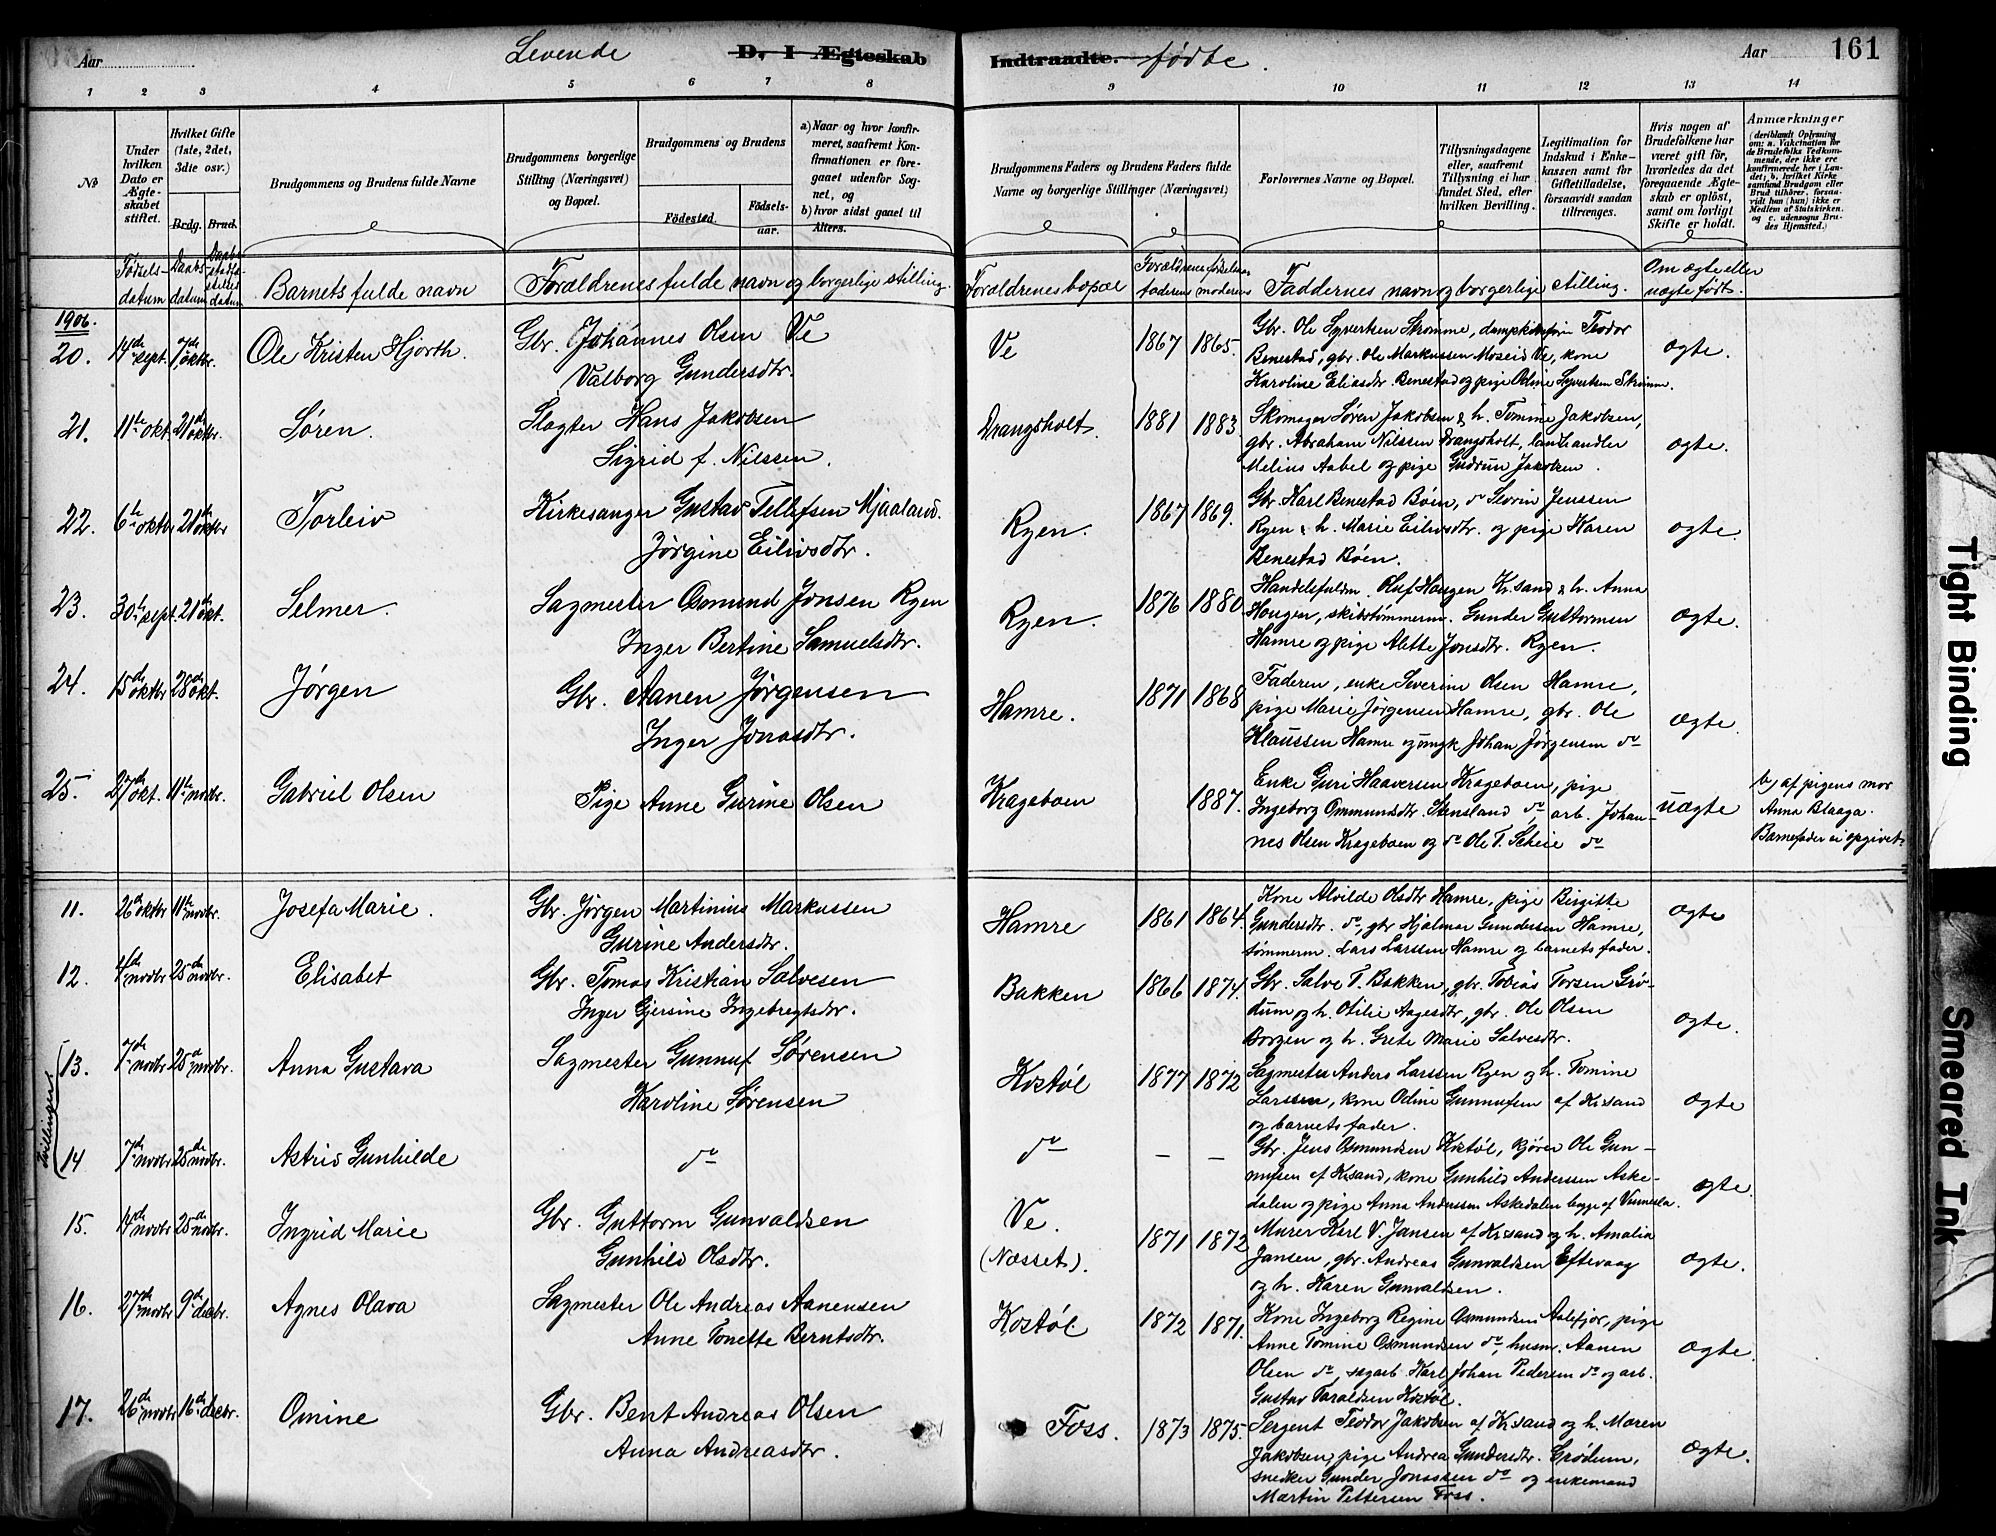 Aar
Levende D. I Ægteskab Indtraadte. fødte.
Aar 161
1 2 3 4 5 6 7 8 9 10 11 12 13 14
No
Under hvilken Dato er Ægteskabet stiftet.
Hvilket Gifte (1ste, 2det, 3die osv.)
Brdg. Brud.
Brudgommens og Brudens fulde Navne
Brudgommens borgerlige Stilling (Næringsvei) og Bopæl.
Brudgommens og Brudens
Födested. Födselsaar.
a) Naar og hvor konfirmeret, saafremt Konfirmationen er foregaaet udenfor Sognet, og
b) hvor sidst gaaet til Alters.
Brudgommens Faders og Brudens Faders fulde Navne og borgerlige Stillinger (Næringsvei)
Forlovernes Navne og Bopæl.
Tillysningsdagene eller, saafremt Tillysning ei har fundet Sted, efter hvilken Bevilling.
Legitimation for Indskud i Enkekassen samt for Giftetilladelse, forsaavidt saadan tiltrænges.
Hvis nogen af Brudefolkene har været gift för, hvorledes da det foregaaende Ægteskab er oplöst, samt om lovligt Skifte er holdt.
Anmærkninger
(deriblandt Oplysning om: a. Vakcination for de Brudefolks Vedkommende, der ikke ere konfirmerede her i Landet; b. hvilket Kirkesamfund Brudgom eller Brud tilhörer, forsaavidt han (hun) ikke er Medlem af Statskirken. og c. udensogns Brudes Hjemsted.)
Fødselsdatum Daabsdatum
Barnets fulde navn
Forældrenes fulde navn og borgerlige stilling.
Forældrenes bopæl
faderens moderens
Faddernes navn og borgerlige stilling.
Om ægte eller uægte født.
1906.
20. 14de sept. 7de oktbr. Ole Kristen Hjorth. Gbr. Johannes Olsen Ve
Valborg Gundersdtr.
Ve 1867 1865. Gbr. Ole Syvertsen Strømme, Teodor
Benestad, gbr. Ole Markussen Moseid Ve, kone
Karoline Eliasdtr. Benestad og pige Odine Syvertsen Strømme.
ægte.
21. 11te okt. 21de oktbr. Søren. Slagter Hans Jakobsen
Sigrid f. Nilssen.
Drangsholt. 1881 1883. Skomager Søren Jakobsen & h. Tomine Jakobsen,
gbr. Abraham Nilssen Drangsholt, landhandler
Melius Aabel og pige Gudrun Jakobsen.
ægte.
22. 6te oktbr 21de oktbr Torleiv Kirkesanger Gustav Tellefsen Mjaaland.
Jørgine Eilivsdtr.
Ryen. 1867 1869. Gbr. Karl Benestad Bøen, do Severin Jenssen
Ryen & h. Marie Eilivsdtr. og pige Karen
Benestad Bøen.
ægte.
23. 30te sept. 21de okt. Selmer. Sagmester Osmund Jonsen Ryen
Inger Bertine Samuelsdtr.
Ryen. 1876 1880. Handelsfuldm. Oluf Haugen K.sand & h. Anna
Haugen, skibstømmerm. Gunder Guttormsen
Hamre og pige Alette Jonsdtr. Ryen.
ægte.
24. 15de oktbr 28de okt. Jørgen Gbr. Aanen Jørgensen
Inger Jonasdtr.
Hamre. 1871 1868 Faderen, enke Severine Olsen Hamre,
pige Marie Jørgensen Hamre, gbr. Ole
Klaussen Hamre og ungk. Johan Jørgensen do
ægte.
25. 27de okt. 11te novbr. Gabriel Olsen Pige Anne Gurine Olsen
Krageboen 1887. Enke Guri Haaversen Krageboen, pige
Ingeborg Ommundsdtr. Stensland do, arb. Johannes Olsen Krageboen og do Ole T. Scheie do
uægte
b) af pigens mor
Anna Blaaga.
Barnefader ei opgivet.
11. 26de oktbr 11te novbr. Josefa Marie. Gbr. Jørgen Martinius Markussen
Gurine Andersdtr.
Hamre 1861 1864. Kone Alvilde Olsdtr Hamre, pige Birgitte
Gundersdtr. do, gbr Hjalmar Gundersen Hamre,
tømmerm. Lars Larssen Hamre og barnets fader.
ægte
12. 4de novbr 25de novbr. Elisabet Gbr. Tomas Kristian Salvesen
Inger Gjersine Ingebregtsdtr.
Bakken 1866 1874. Gbr. Salve T. Bakken, gbr. Tobias Torsen Grødum og h. Otilie Aagesdtr, gbr. Ole Olsen
Borgen og h. Grete Marie Salvesdtr.
ægte.
Tvillinger
13. 7de novbr 25de novbr. Anna Gustava Sagmester Gunnuf Sørensen
Karoline Sørensen
Kostøl 1877 1872 Sagmester Anders Larssen Ryen og h. Tomine
Larssen, kone Odine Gunnufsen af Krsand
og barnets fader.
ægte
14 7de novbr 25de novbr. Astrid Gunhilde do
do — — Gbr. Jens Osmundsen Kostøl, kjører Ole Gunnufsen af Krsand, kone Gunhild Anderssen Askedalen og pige Anna Anderssen Askedalen begge af Vennesla.
ægte.
15. 14de novbr 25de novbr. Ingrid Marie Gbr. Guttorm Gunvaldsen
Gunhild Olsdtr.
Ve.
(Næsset). 1871 1872 Murer Karl V. Jansen af Krsand og h. Amalia
Jansen, gbr. Andreas Gunvaldsen Eftevaag
og h. Karen Gunvaldsen.
ægte.
16. 27de novbr 9de decbr. Agnes Olava Sagmester Ole Andreas Aanensen
Anne Tonette Berntsdtr.
Kostøl 1872 1871. Kone Ingeborg Regine Osmundsen Aalefjær, pige
Anne Tomine Osmundsen do, husm. Aanen
Olsen do, sagarb. Karl Johan Pedersen do og arb.
Gustav Taraldsen Kostøl.
ægte.
17. 26de novbr 16de decbr. Omine Gbr. Bent Andreas Olsen
Anna Andreasdtr.
Foss. 1873 1875. Sergent Teodor Jakobsen af Krsand og h. Maren
Jakobsen, pige Andrea Gundersdtr. Grødum,
snedker Gunder Jonassen do og enkemand
Martin Pettersen Foss.
ægte.
Tight Binding
Smeared Ink